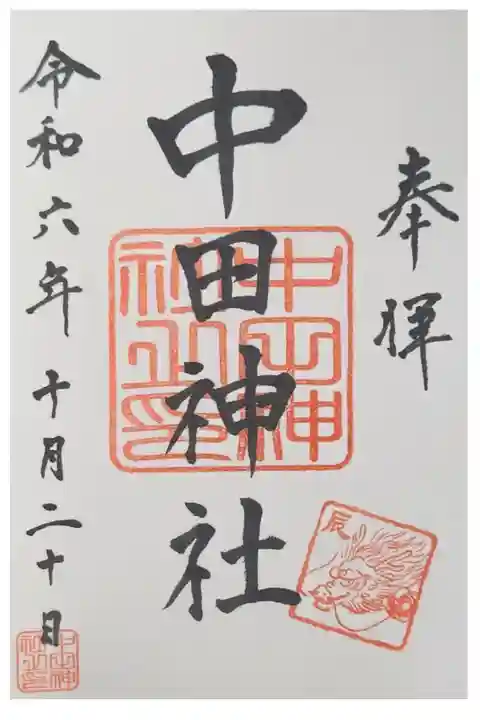 奉拝
中田神社
中田神社印
辰
令和六年十月二十日